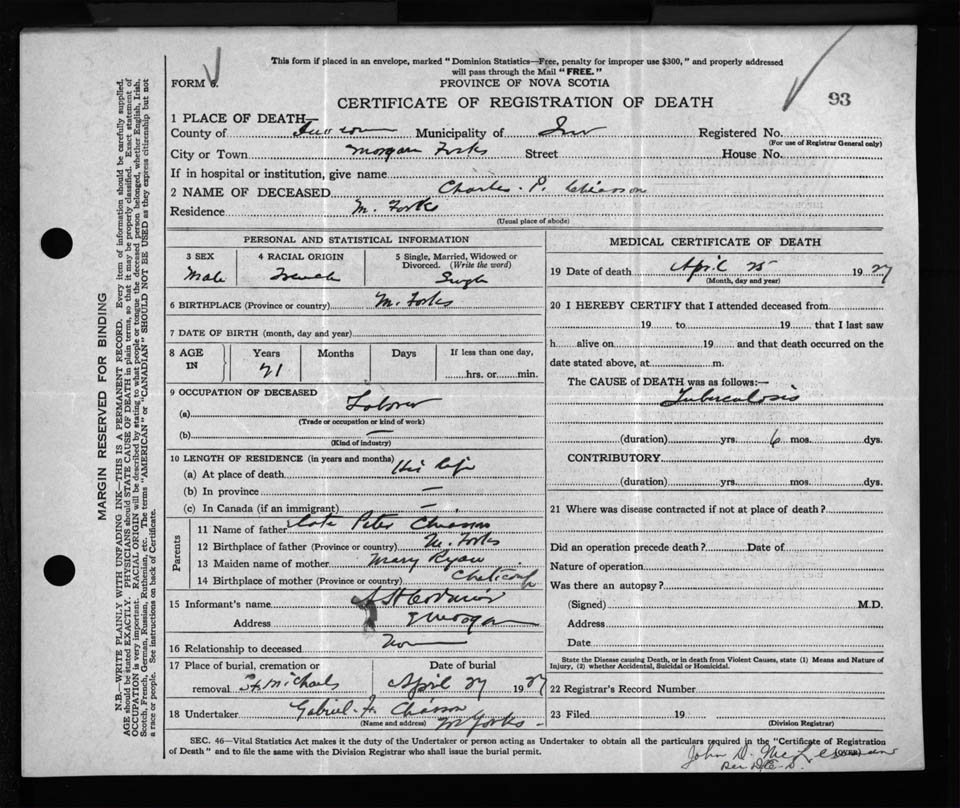 This form if placed in an envelope, marked "Dominion Statistics—Free, penalty for improper use $300," and properly addressed
will pass through the Mail "FREE."
FORM 6.
PROVINCE OF NOVA SCOTIA
CERTIFICATE OF REGISTRATION OF DEATH
93
1 PLACE OF DEATH
County of Municipality of Inv Registered No.
(For use of Registrar General only)
City or Town Morgan Forks Street House No.
If in hospital or institution, give name
2 NAME OF DECEASED Charles P. Chiasson
Residence M. Forks
(Usual place of abode)
PERSONAL AND STATISTICAL INFORMATION
3 SEX
Male
4 RACIAL ORIGIN
French
5 Single, Married, Widowed or
Divorced. (Write the word)
Single
6 BIRTHPLACE (Province or country) M. Forks
7 DATE OF BIRTH (month, day and year)
8 AGE
IN
Years
21
Months
Days
If less than one day,
hrs. or min.
9 OCCUPATION OF DECEASED
(a) Laborer
(Trade or occupation or kind of work)
(b) —
(Kind of industry)
10 LENGTH OF RESIDENCE (in years and months)
(a) At place of death his life
(b) In province —
(c) In Canada (if an immigrant) —
Parents
11 Name of father Late Peter Chiasson
12 Birthplace of father (Province or country) M. Forks
13 Maiden name of mother Mary Ryan
14 Birthplace of mother (Province or country) Cheticamp
15 Informant's name
Address
16 Relationship to deceased
17 Place of burial, cremation or
removal St. Michaels
Date of burial
April 27 1927
18 Undertaker Gabriel Chiasson
(Name and address) M Forks
MEDICAL CERTIFICATE OF DEATH
19 Date of death April 25 1927
(Month, day and year)
20 I HEREBY CERTIFY that I attended deceased from
19 to 19 that I last saw
h alive on 19 and that death occurred on the
date stated above, at m.
The CAUSE of DEATH was as follows:—
Tuberculosis
(duration) yrs. 6 mos. dys.
CONTRIBUTORY
(duration) yrs. mos. dys.
21 Where was disease contracted if not at place of death?
Did an operation precede death? Date of
Nature of operation
Was there an autopsy?
(Signed) M.D.
Address
Date
State the Disease causing Death, or in death from Violent Causes, state (1) Means and Nature of
Injury, (2) whether Accidental, Suicidal or Homicidal.
22 Registrar's Record Number
23 Filed 19
(Division Registrar)
SEC. 46—Vital Statistics Act makes it the duty of the Undertaker or person acting as Undertaker to obtain all the particulars required in the "Certificate of Registration
of Death" and to file the same with the Division Registrar who shall issue the burial permit.
(OVER)
John D.
MARGIN RESERVED FOR BINDING
N.B.—WRITE PLAINLY WITH UNFADING INK—THIS IS A PERMANENT RECORD. Every item of information should be carefully supplied.
AGE should be stated EXACTLY. PHYSICIANS should STATE CAUSE OF DEATH in plain terms, so that it may be properly classified. Exact statement of
OCCUPATION is very important. RACIAL ORIGIN will be described by stating to what people or tongue the deceased person belonged, whether English, Irish,
Scotch, French, German, Russian, Ruthenian, etc. The terms "AMERICAN" or "CANADIAN" SHOULD NOT BE USED as they express citizenship but not
a race or people. See instructions on back of Certificate.